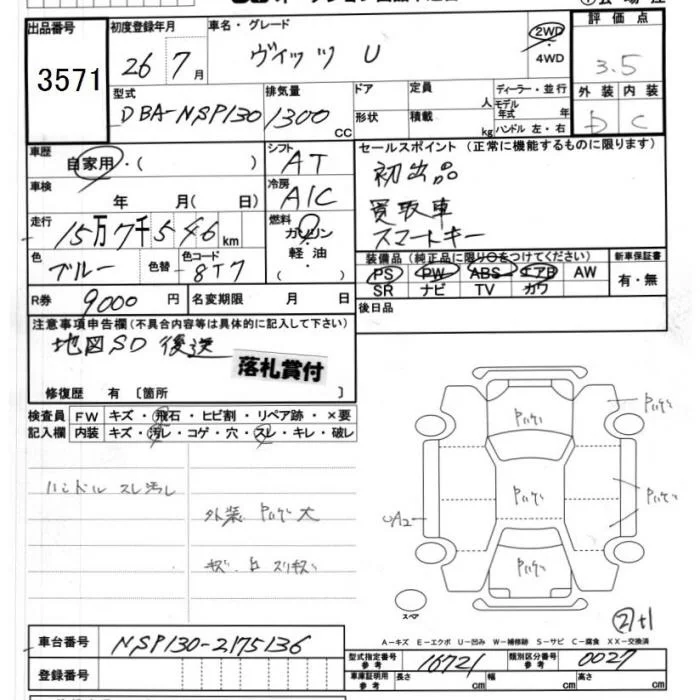 出品番号 初度登録年月 車名・グレード 評価点
3571 26 7月 ヴィッツ U 2WD ・ 4WD 3.5
型式 排気量 ドア 定員 ディーラー・並行 外装 内装
DBA-NSP130 1300 CC 形状 積載 人 kg モデル年式 年 ハンドル 左・右 D C
車歴 シフト セールスポイント(正常に機能するものに限ります)
自家用・( ) AT 初出品
車検 冷房
年 月( 日) A/C 買取車
走行 燃料 スマートキー
15万7千546km ガソリン・軽油・( )
色 色替 色コード 装備品(純正品に限り○をつけてください) 新車保証書
ブルー 8T7 PS PW ABS エアB AW 有・無
SR ナビ TV カワ
R券 9000円 名変期限 月 日 後日品
注意事項申告欄(不具合内容等は具体的に記入して下さい)
地図SD 後送
落札賞付
修復歴 有 〔箇所 〕
検査員 FW キズ・飛石・ヒビ割・リペア跡・×要
記入欄 内装 キズ・汚レ・コゲ・穴・スレ・キレ・破レ
ハンドル スレ汚レ
外装
大
UA2
スペア
②+1
A-キズ E-エクボ U-凹み W-補修跡 S-サビ C-腐食 XX-交換済
車台番号 NSP130-2175136
型式指定番号 参考 16721 類別区分番号 参考 0027
登録番号 車庫証明用 参考 長さ cm 幅 cm 高さ cm